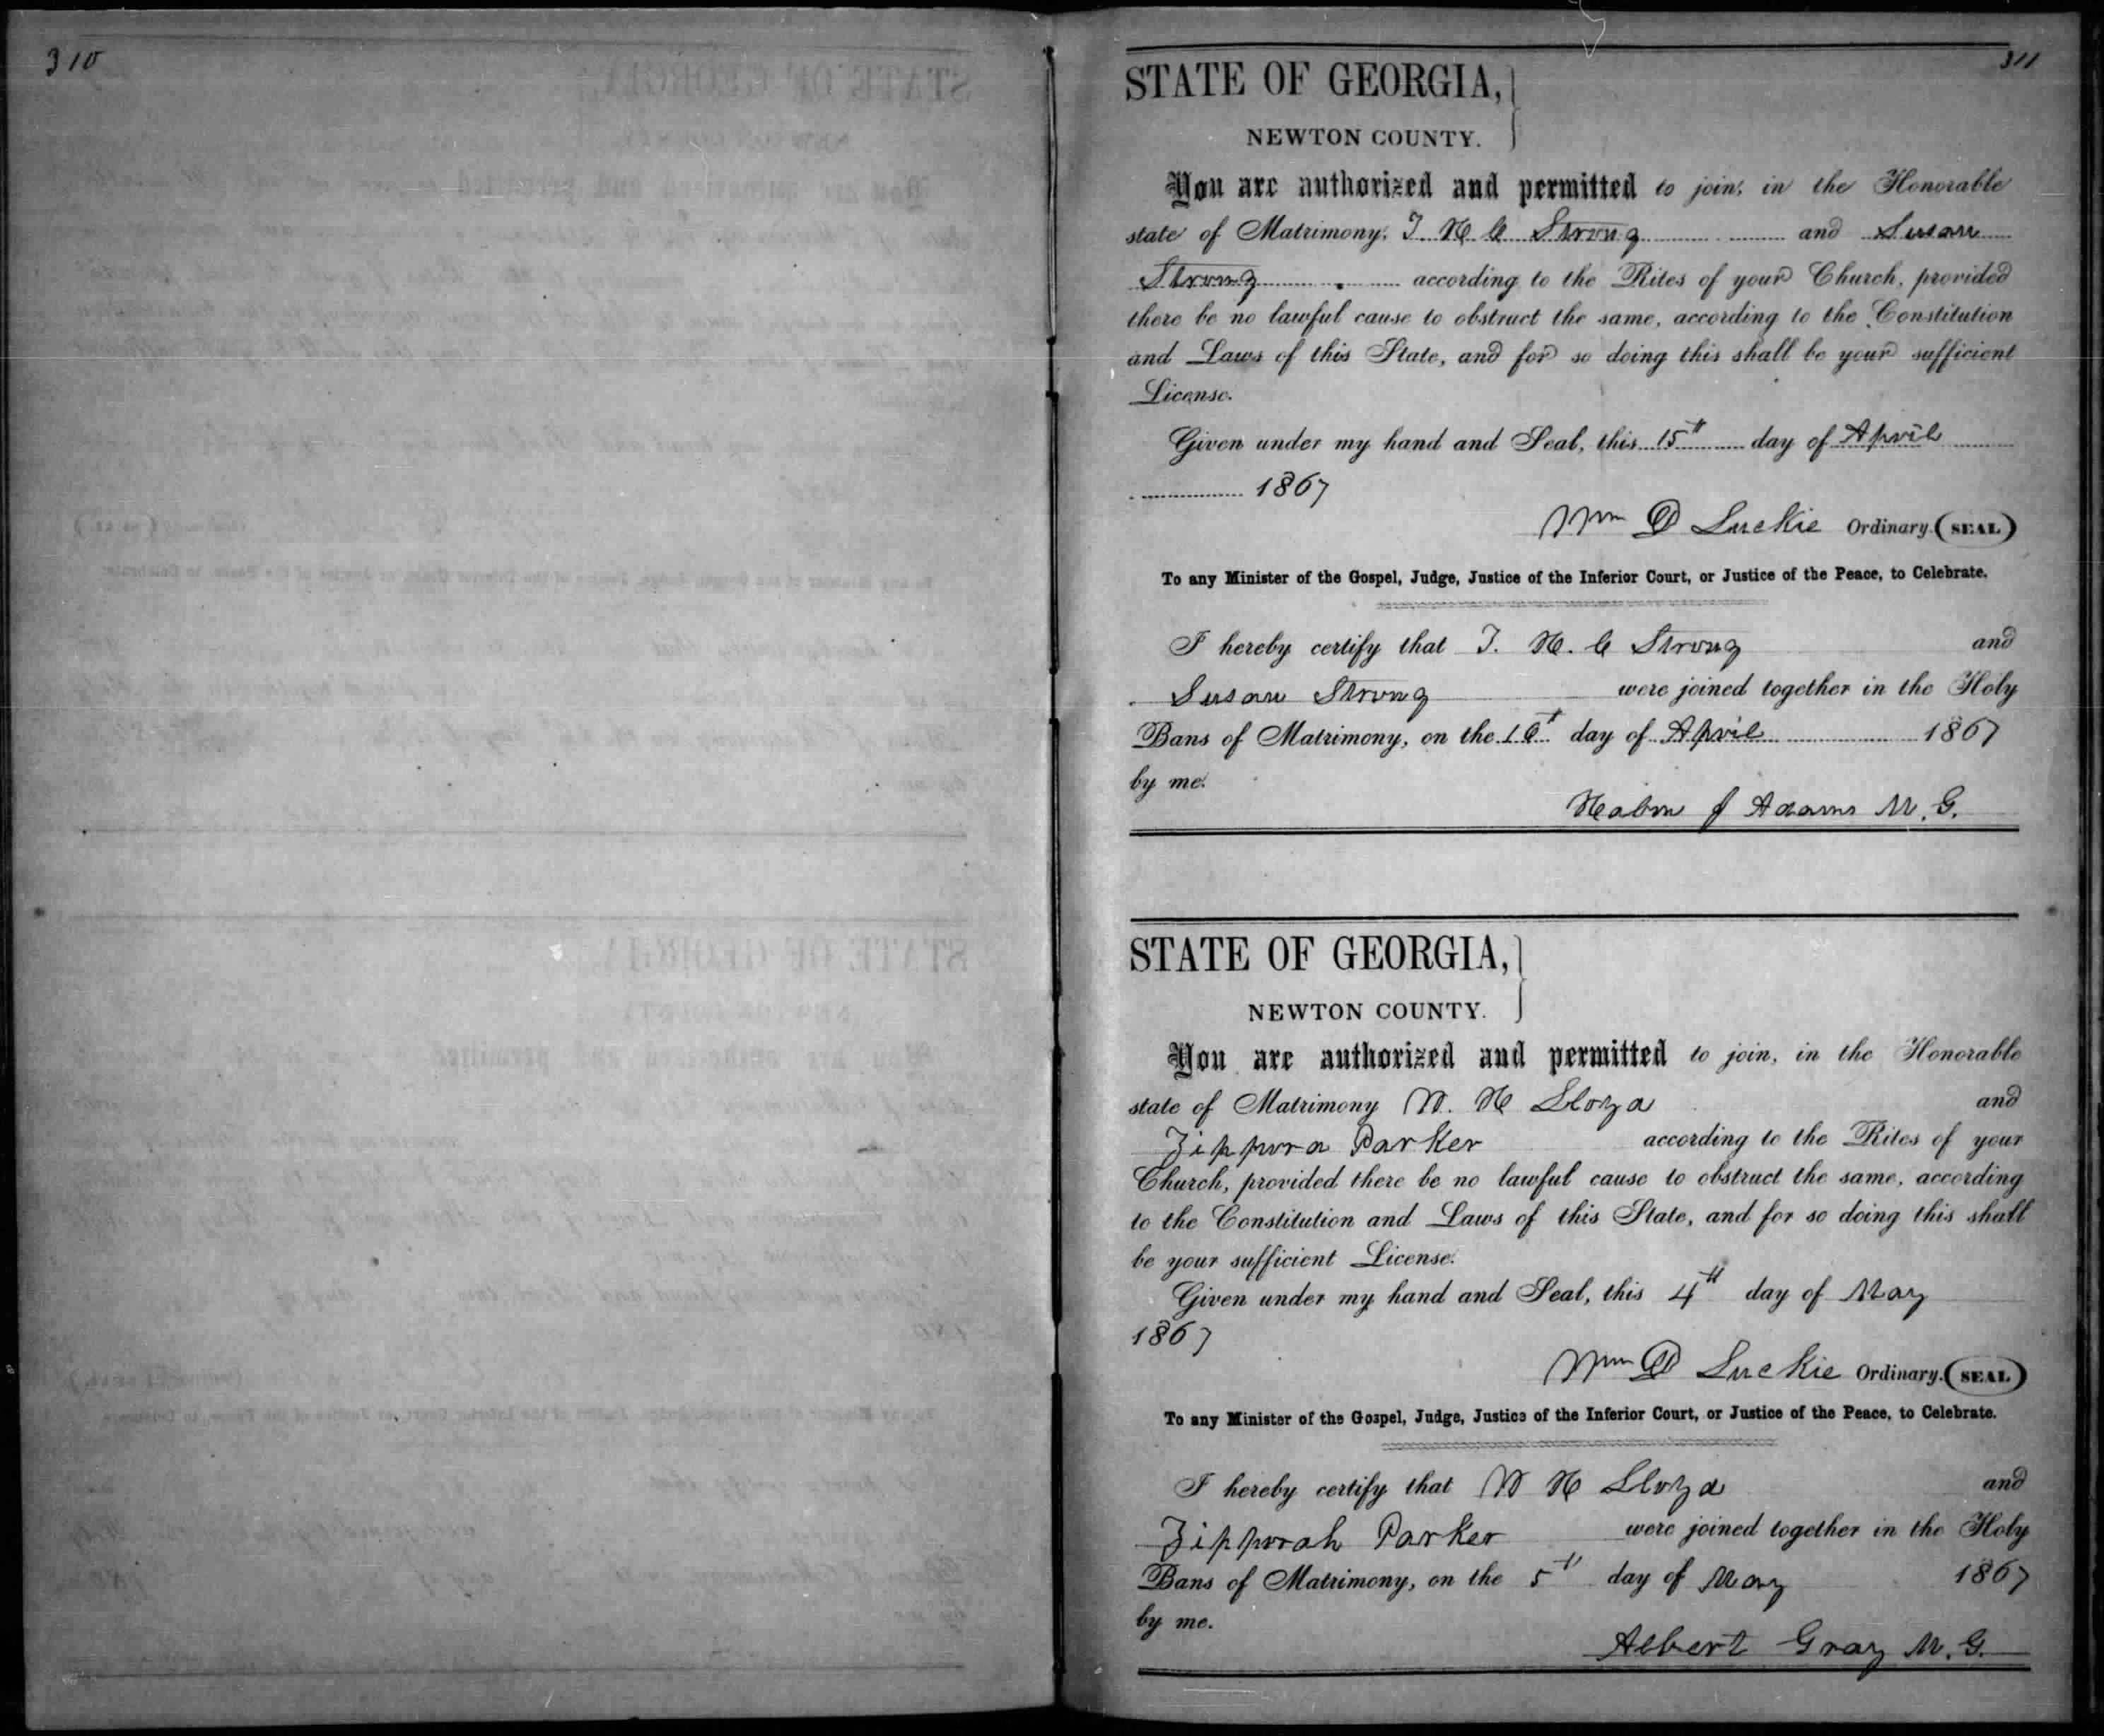 310
311
STATE OF GEORGIA,
NEWTON COUNTY.
You are authorized and permitted to join, in the Honorable
state of Matrimony, T. H. C Strong and Susan
Strong according to the Rites of your Church, provided
there be no lawful cause to obstruct the same, according to the Constitution
and Laws of this State, and for so doing this shall be your sufficient
License.
Given under my hand and Seal, this 15th day of April
1867
Wm D Luckie Ordinary. (SEAL)
To any Minister of the Gospel, Judge, Justice of the Inferior Court, or Justice of the Peace, to Celebrate.
I hereby certify that T. H. C Strong and
Susan Strong were joined together in the Holy
Bans of Matrimony, on the 16th day of April 1867
by me.
Habon J Adams M. G.
STATE OF GEORGIA,
NEWTON COUNTY.
You are authorized and permitted to join, in the Honorable
state of Matrimony W. H and
Zippora Parker according to the Rites of your
Church, provided there be no lawful cause to obstruct the same, according
to the Constitution and Laws of this State, and for so doing this shall
be your sufficient License.
Given under my hand and Seal, this 4th day of May
1867
Wm D Luckie Ordinary. (SEAL)
To any Minister of the Gospel, Judge, Justice of the Inferior Court, or Justice of the Peace, to Celebrate.
I hereby certify that W H and
Zipporah Parker were joined together in the Holy
Bans of Matrimony, on the 5th day of May 1867
by me.
Albert Gray M. G.